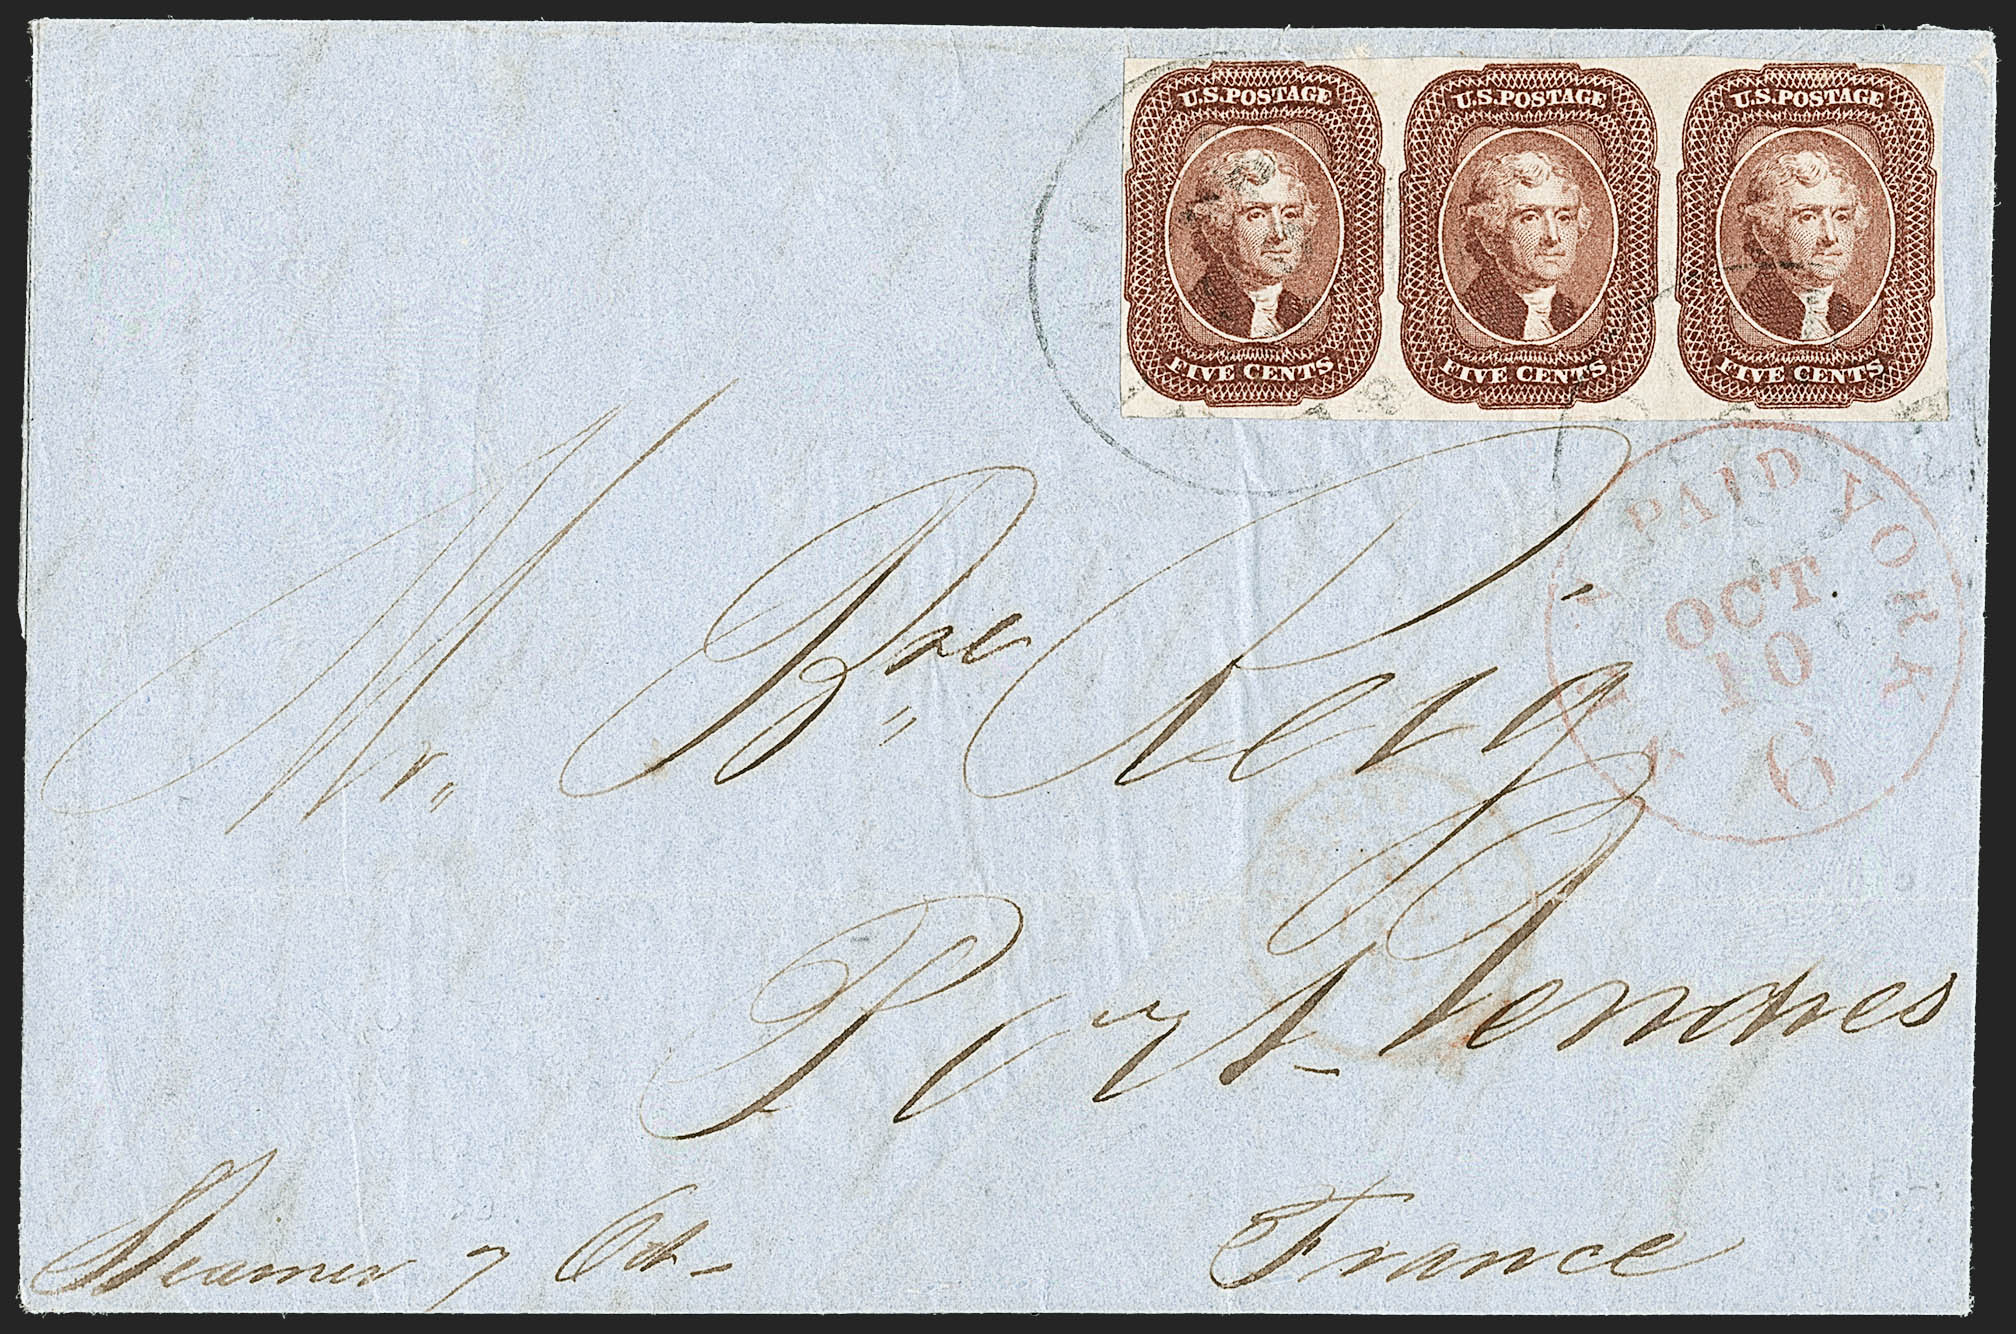 U.S.POSTAGE U.S.POSTAGE U.S.POSTAGE
FIVE CENTS FIVE CENTS FIVE CENTS
PAID YORK
OCT
10
6
Mr,,
Port Vendres
Steamer 7 Oct-
France